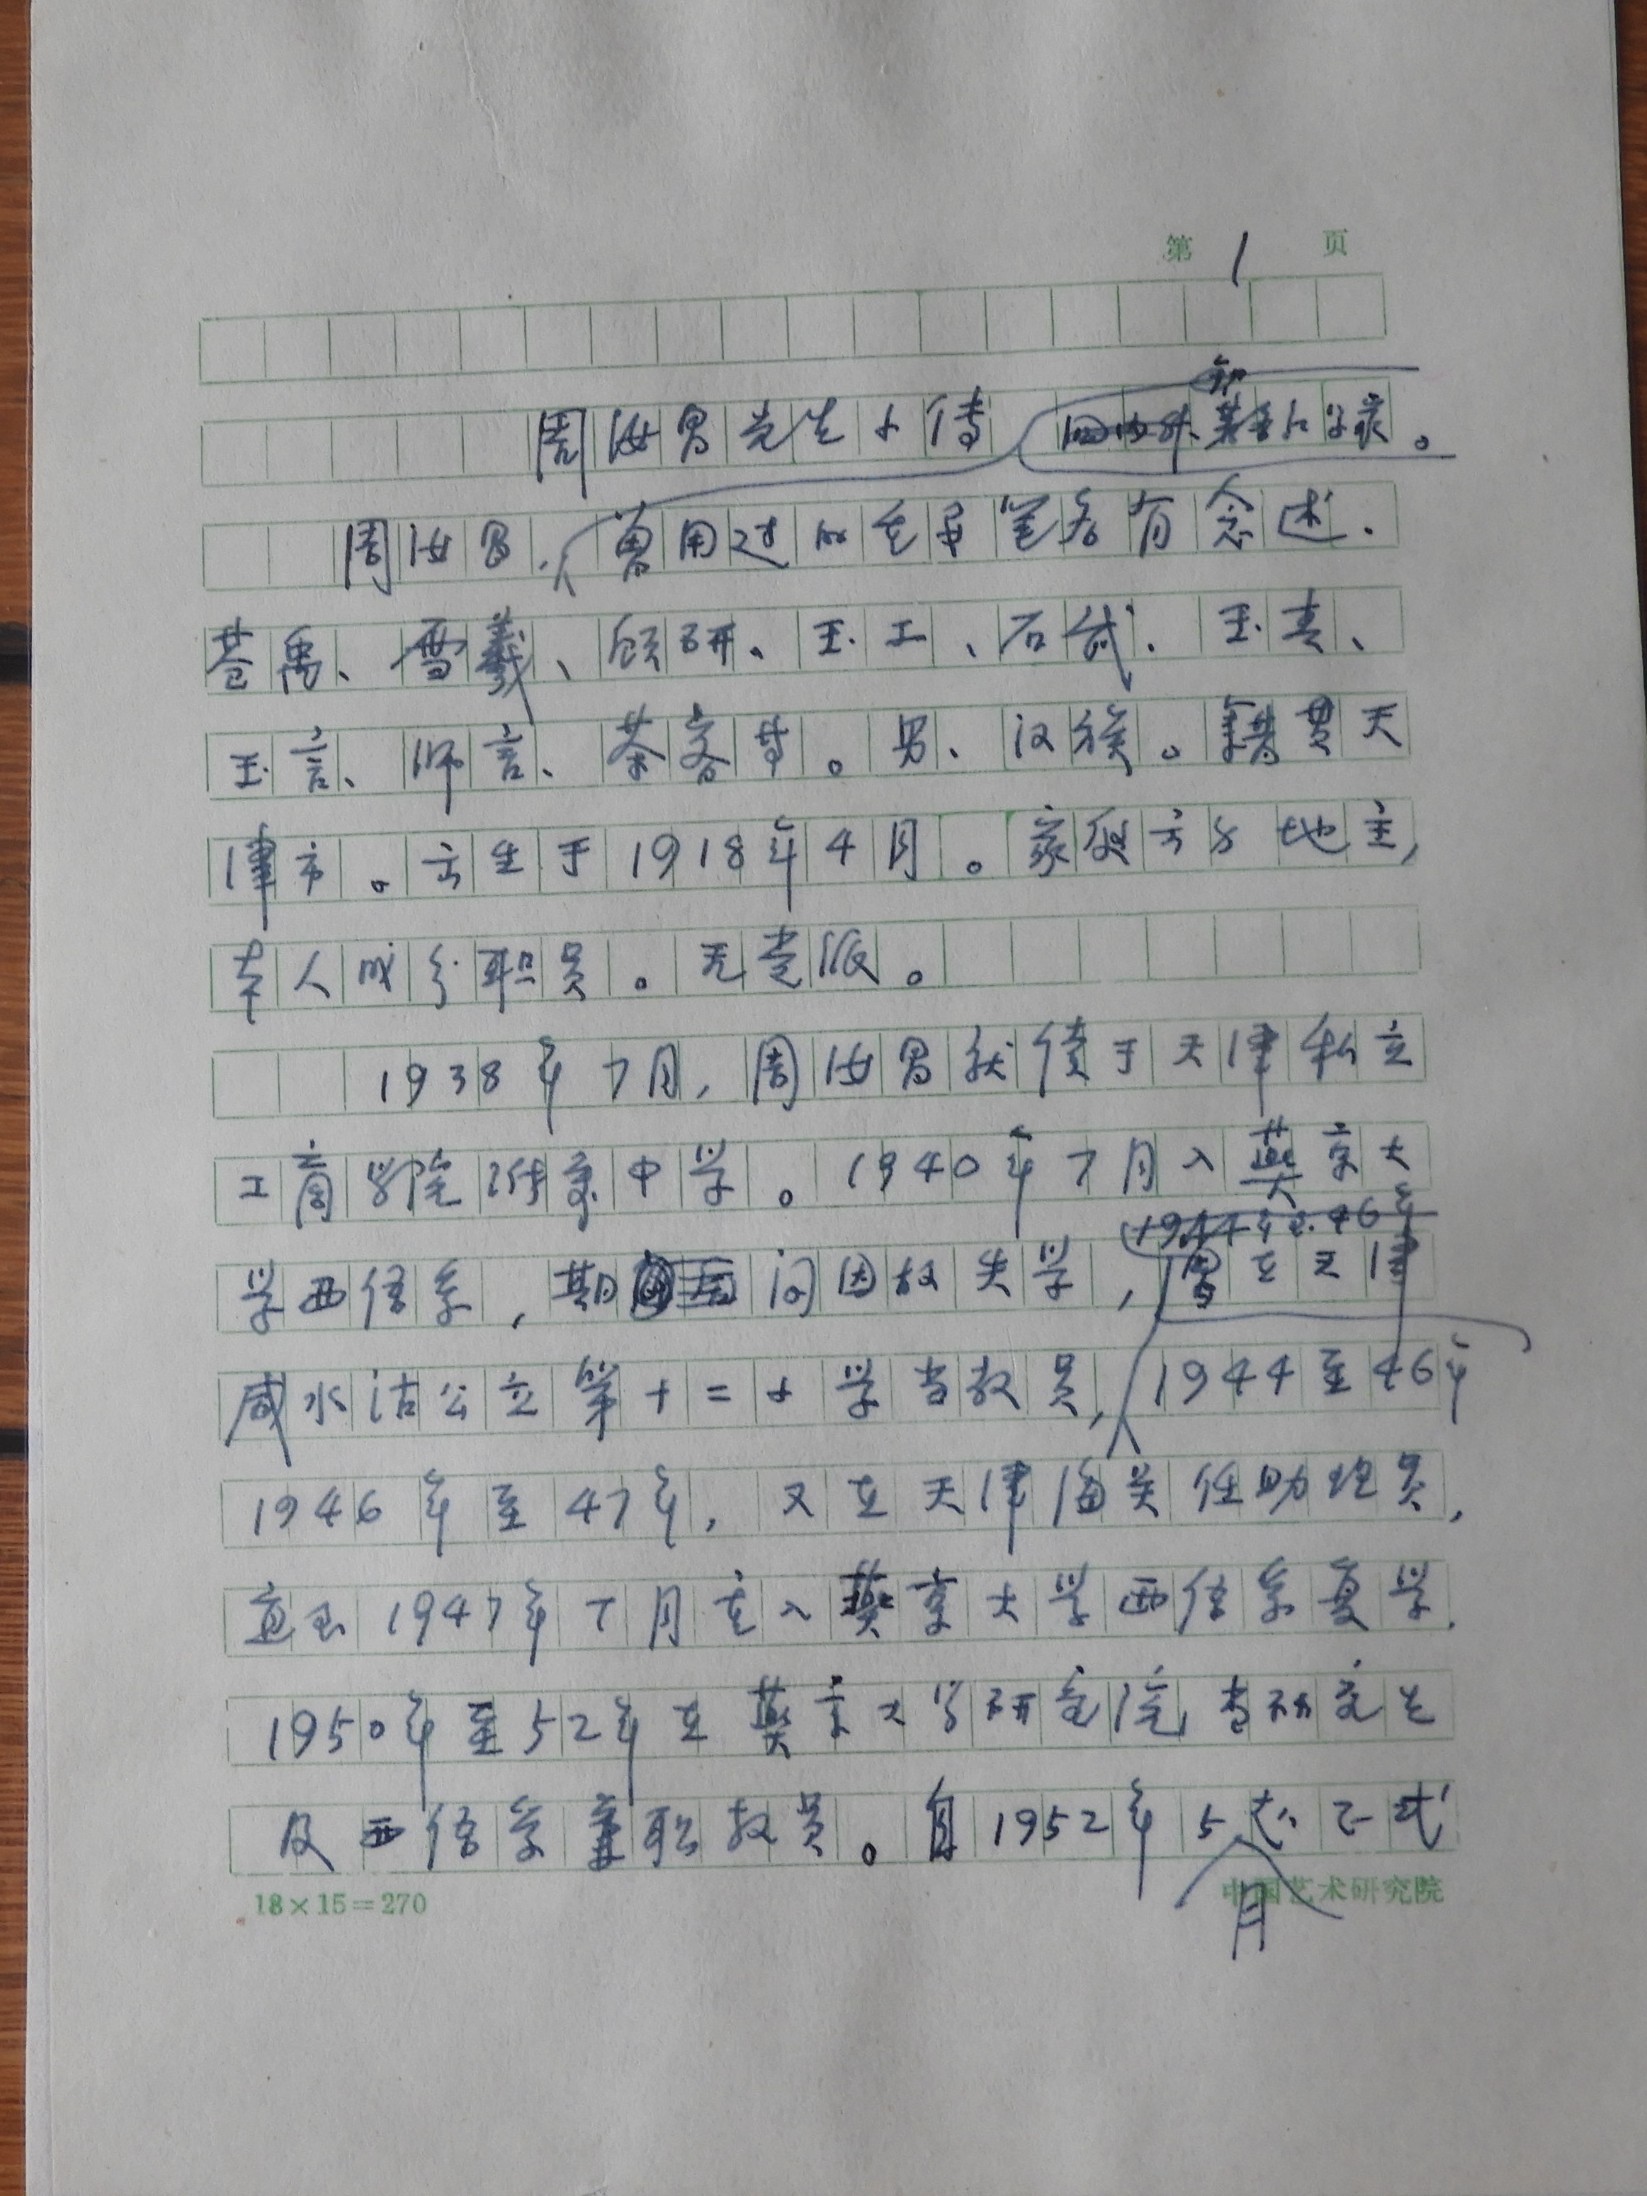 第 1 页
周汝昌先生小传
周汝昌,曾用过的笔名有念述、
苍禹、雪羲、顾研、玉工、石武、玉青、
玉言、师言、茶客等。男、汉族。籍贯天
津市。出生于1918年4月。家庭出身地主,
本人成分职员。无党派。
1938年7月,周汝昌就读于天津私立
工商学院附属中学。1940年7月入燕京大
学西语系,期间因故失学,曾在天津
咸水沽公立第十二小学当教员,1944至46年
1946年至47年,又在天津海关任助理员,
直至1947年7月在入燕京大学西语系复学.
1950年至52年在燕京大学研究院当研究生
及西语系兼职教员。自1952年5月起正式
18×15=270
中国艺术研究院